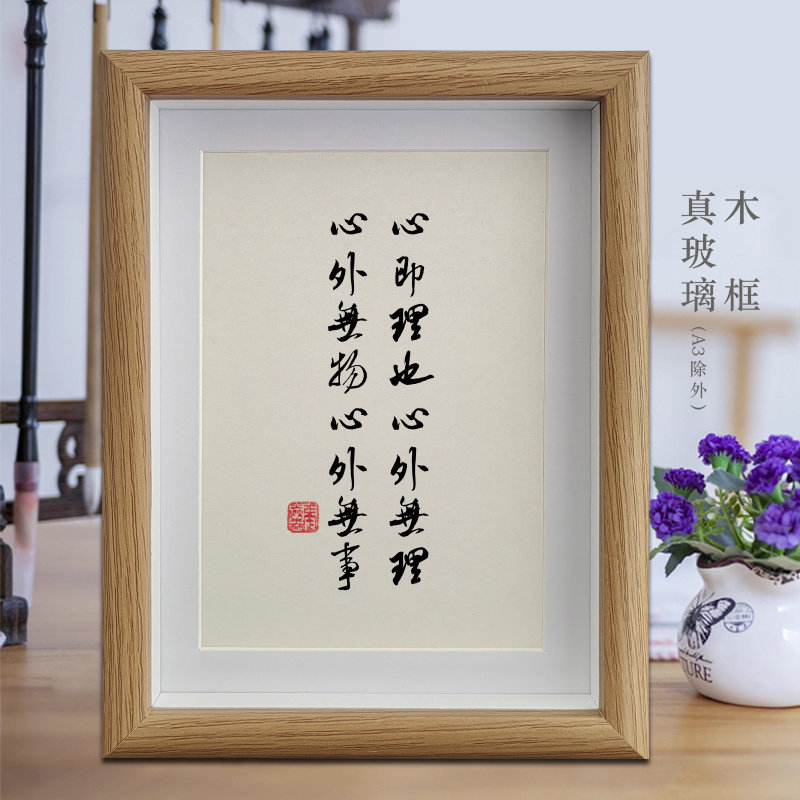 心即理也心外無理
心外無物心外無事
木框
真玻璃(A3除外)
TURE